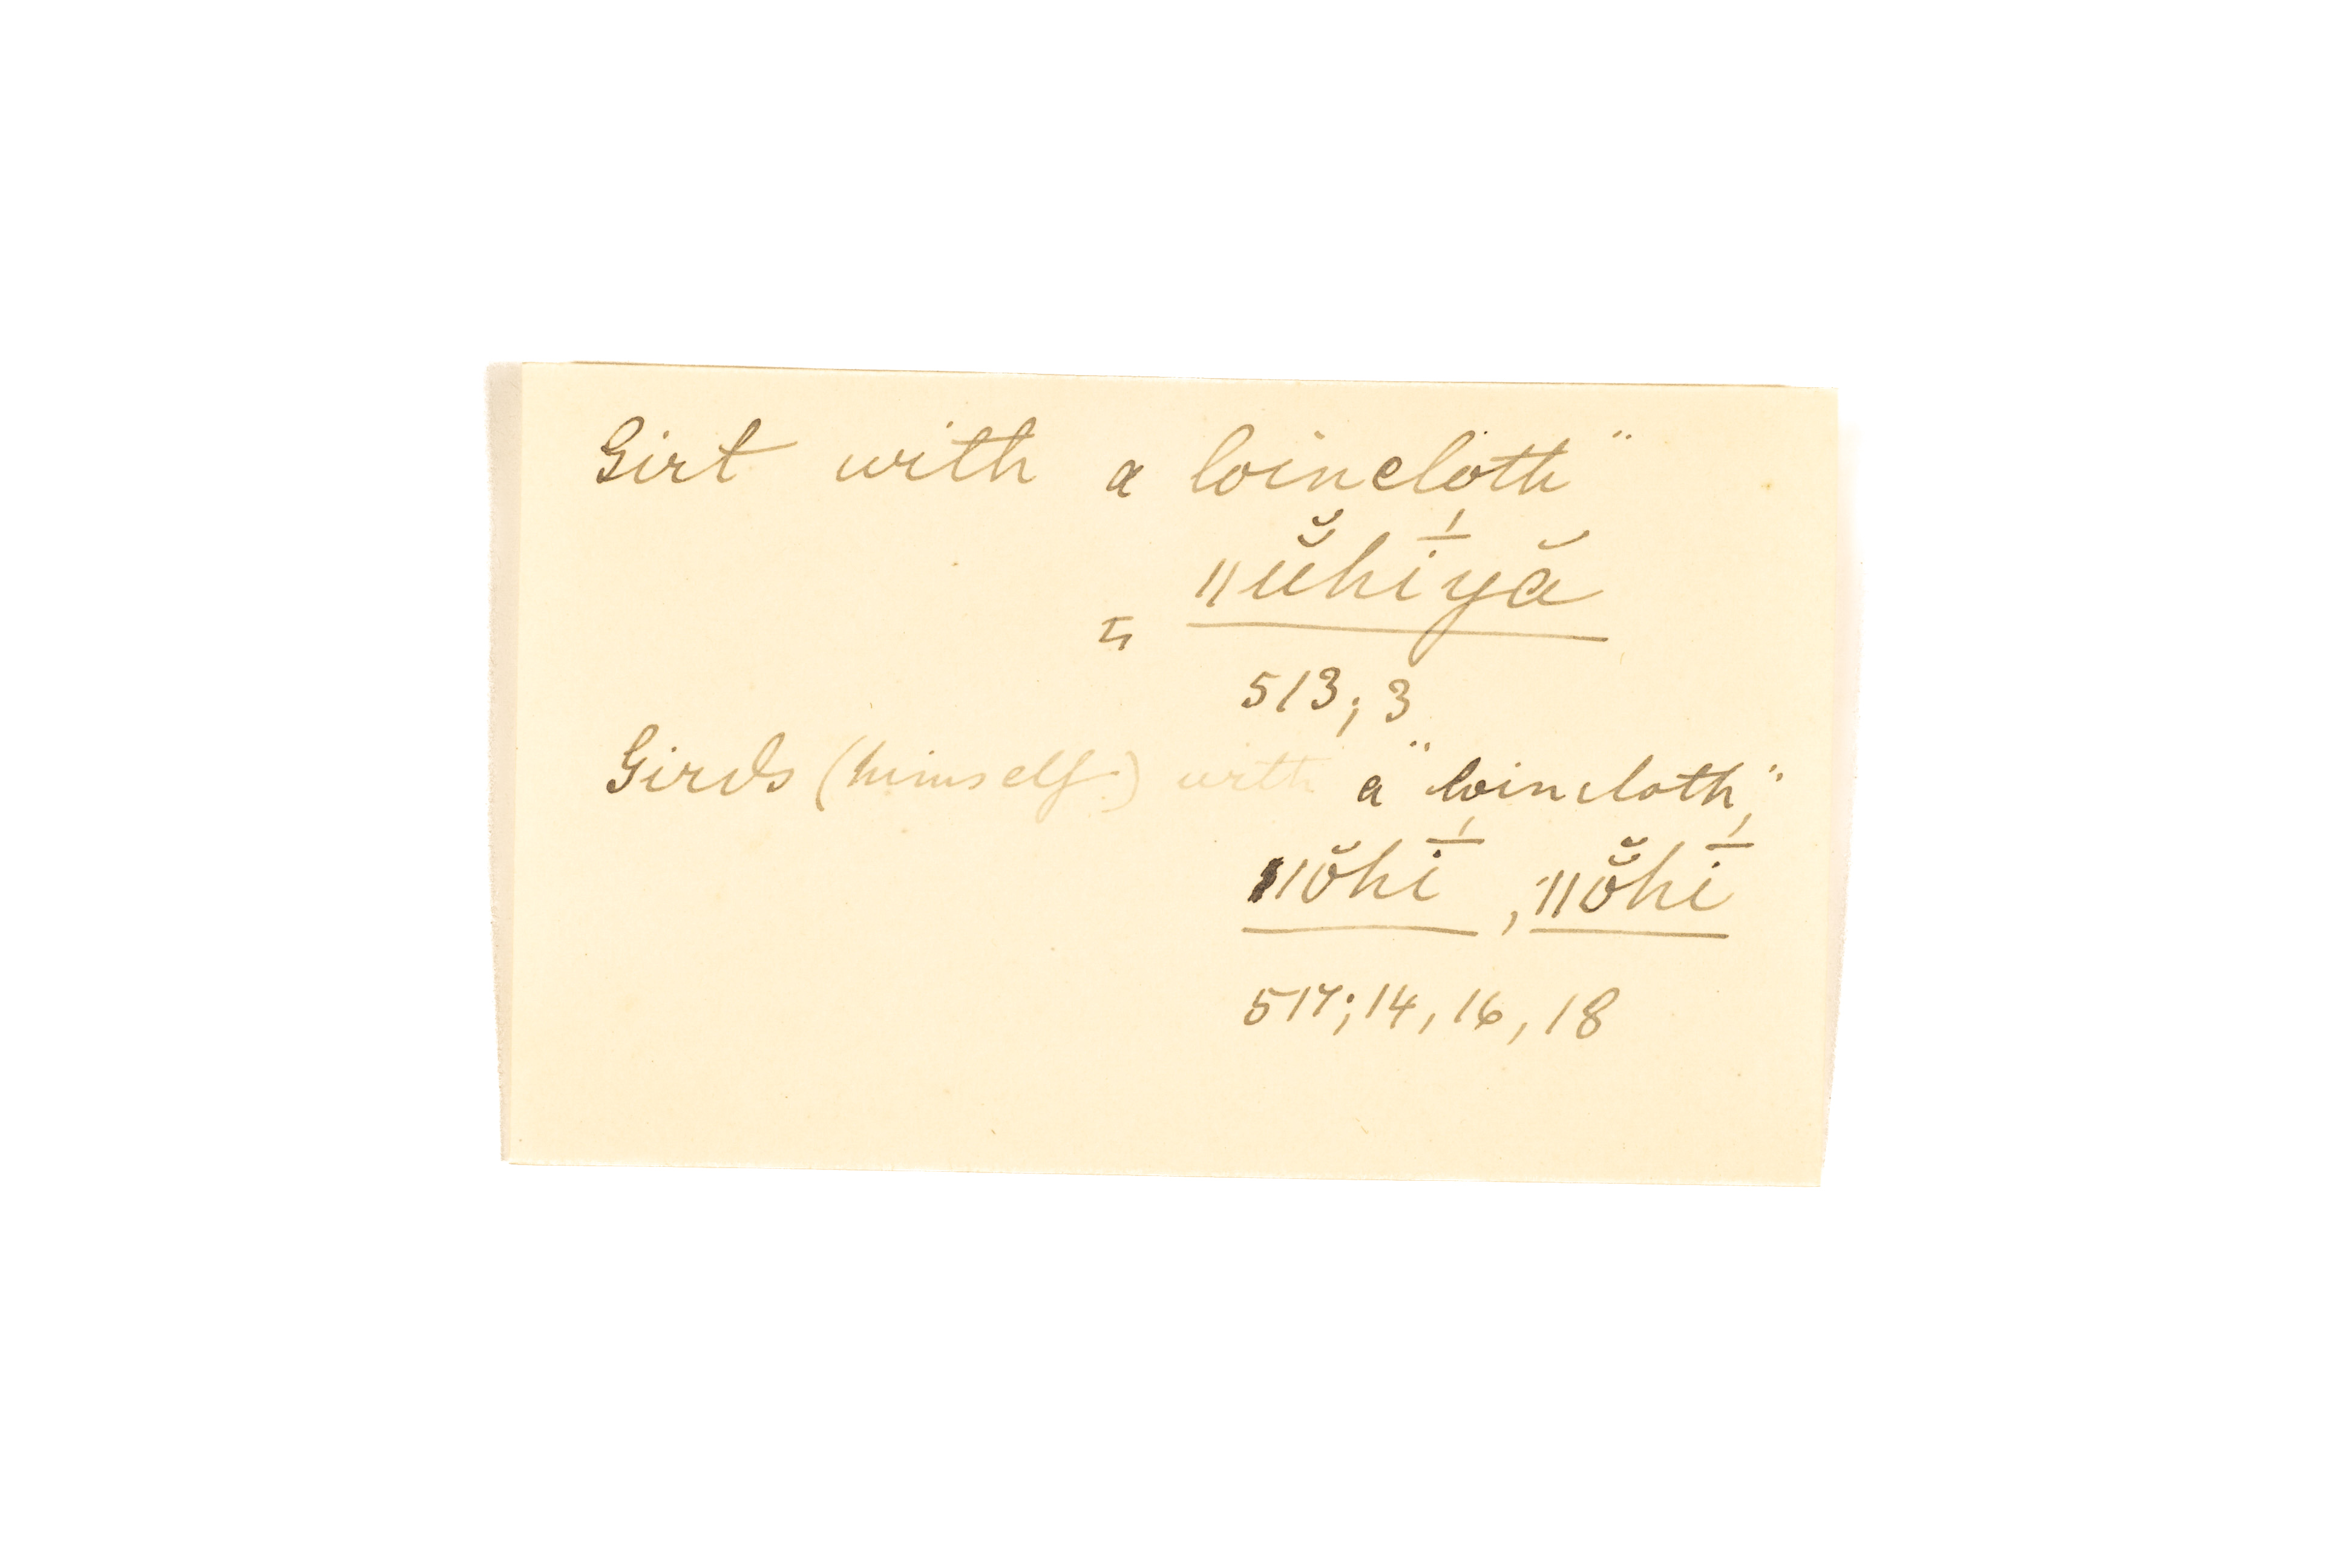 Girt with a loincloth"
ǁŭ̆hī́yă
ʗ
513; 3
Girds (himself) with a "loincloth,"
ǁŏhī́, ǁŏ̆hī́
517; 14, 16, 18